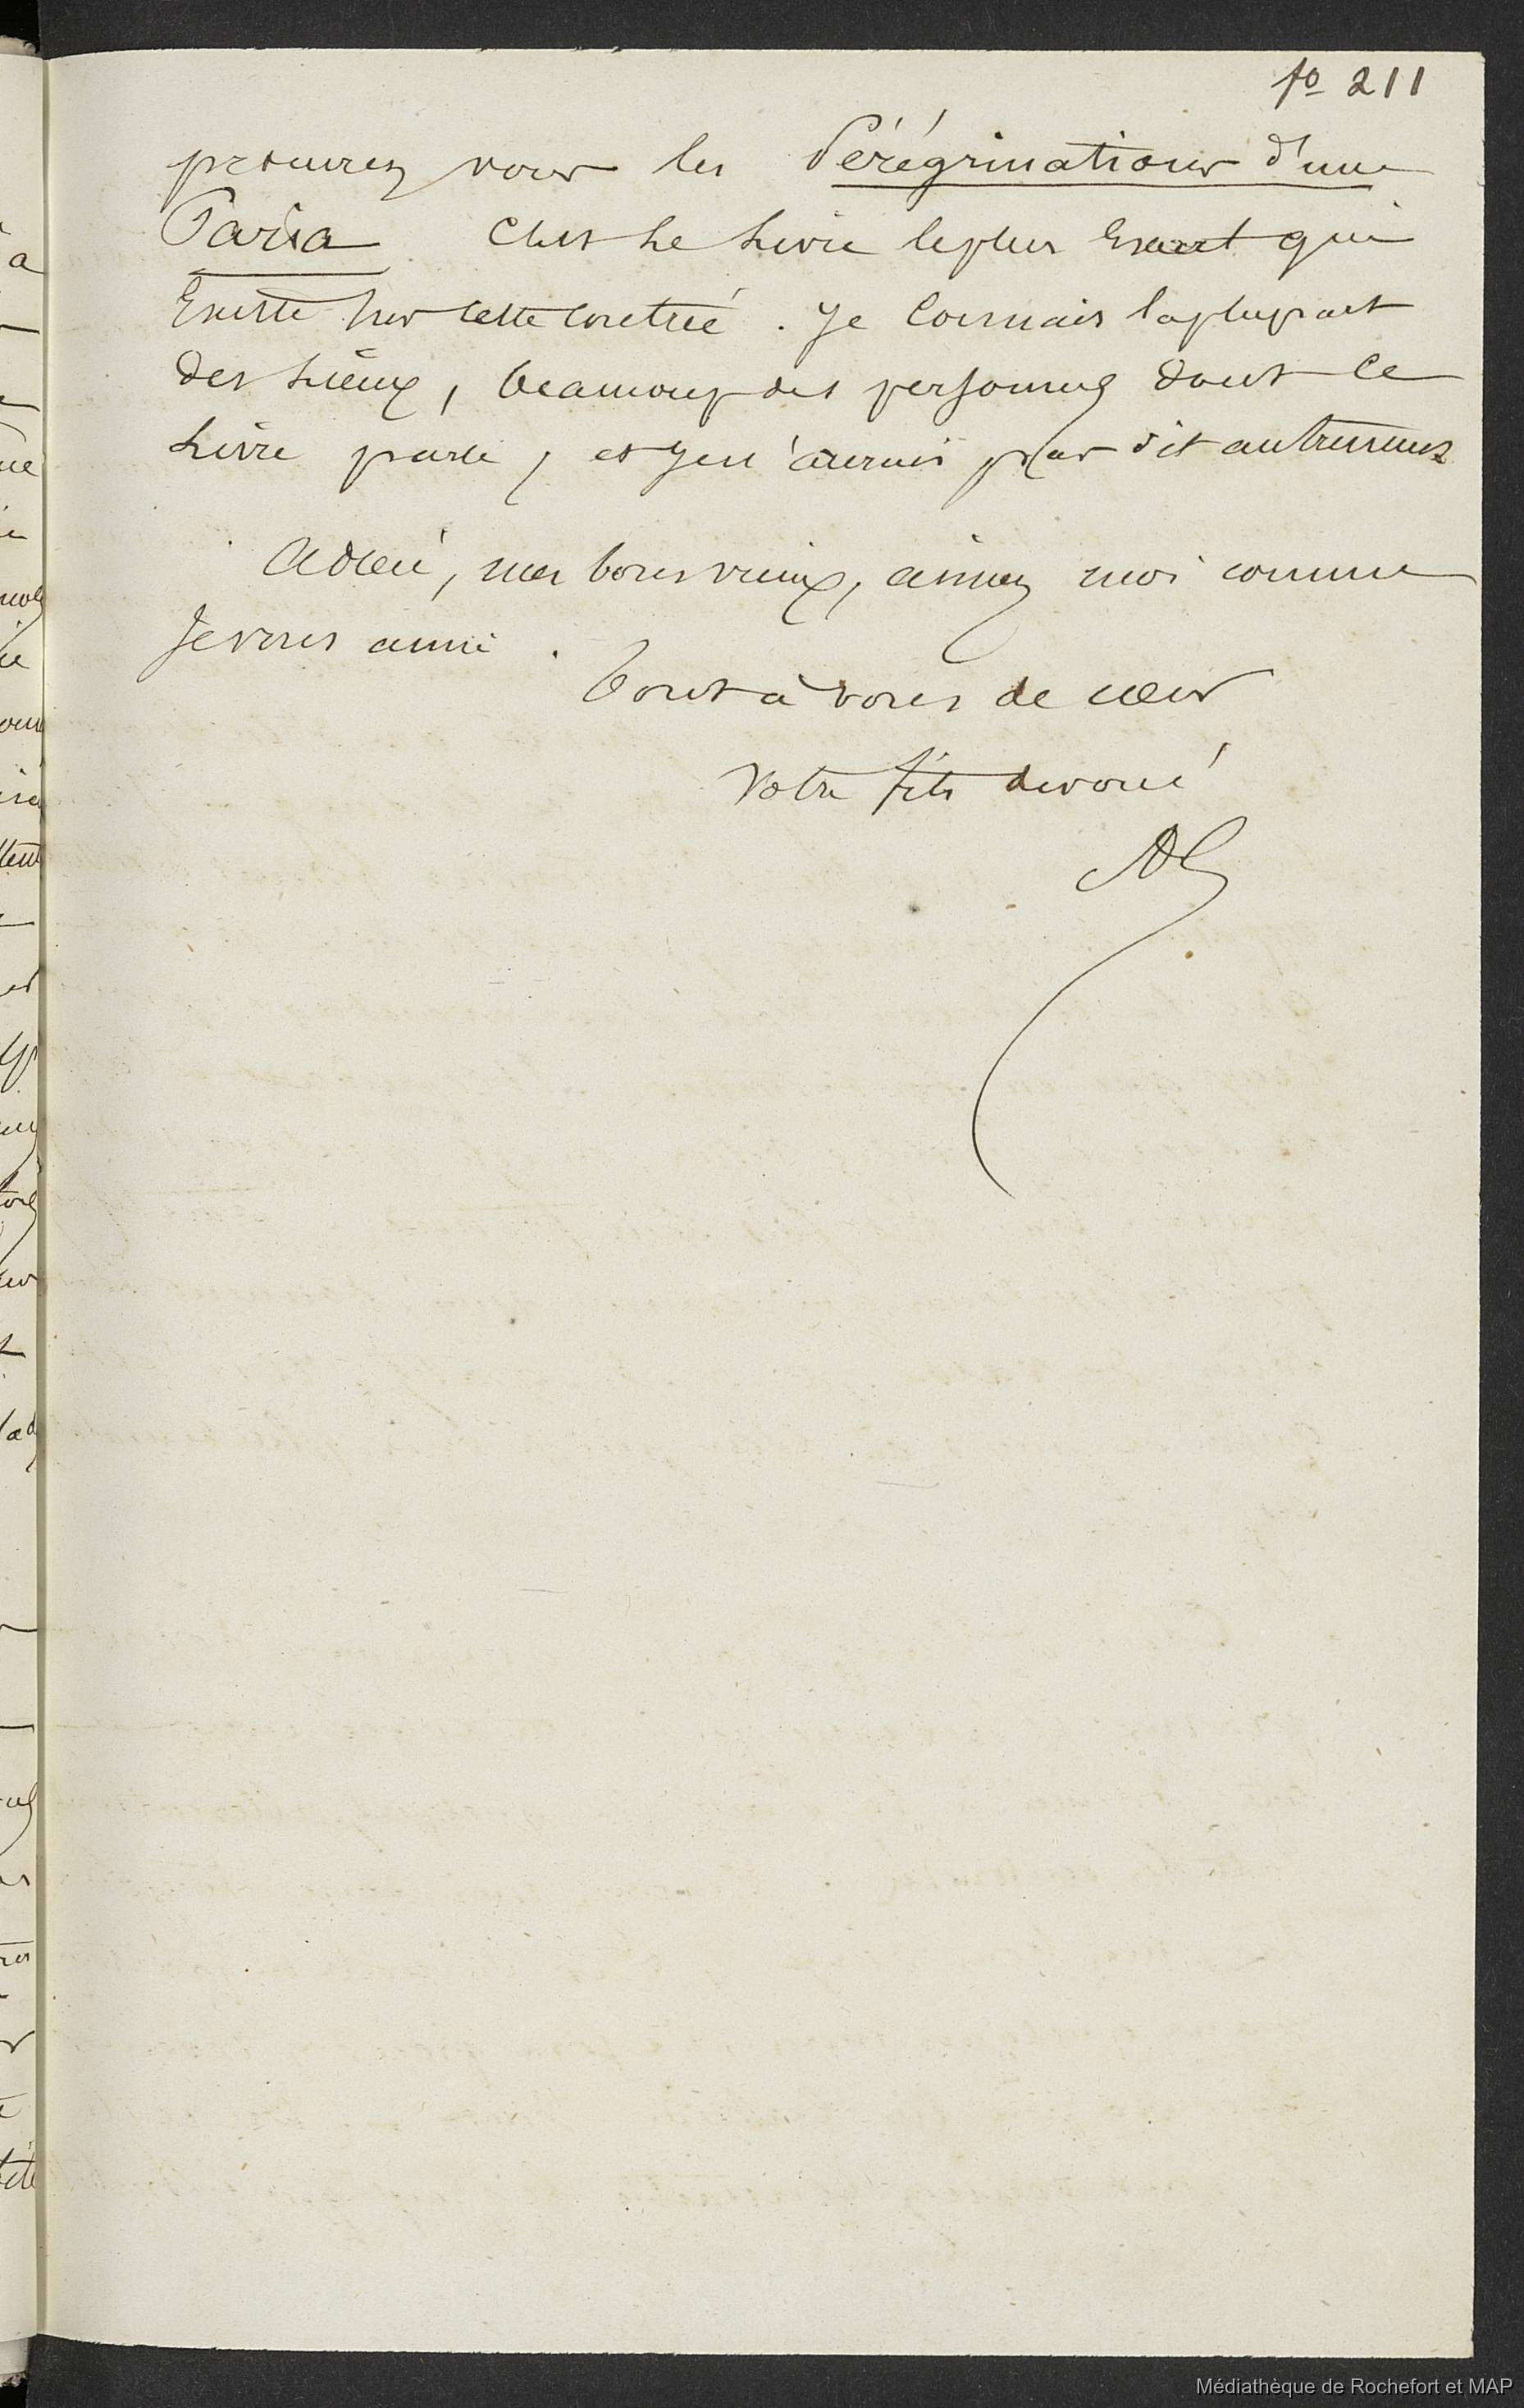 fo 211
procurez vous les Pérégrinations d'une
Paria C'est Le Livre le plus Exact qui
Existe sur cette contrée. Je Connais la plupart
des Lieux, beaucoup des personnes dont ce
Livre parle, et je n'aurais pas dit autrement
Adieu, mes bons vieux, aimez moi comme
Je vous aime.
tout à vous de cœur
Votre fils devoué
Médiathèque de Rochefort et MAP